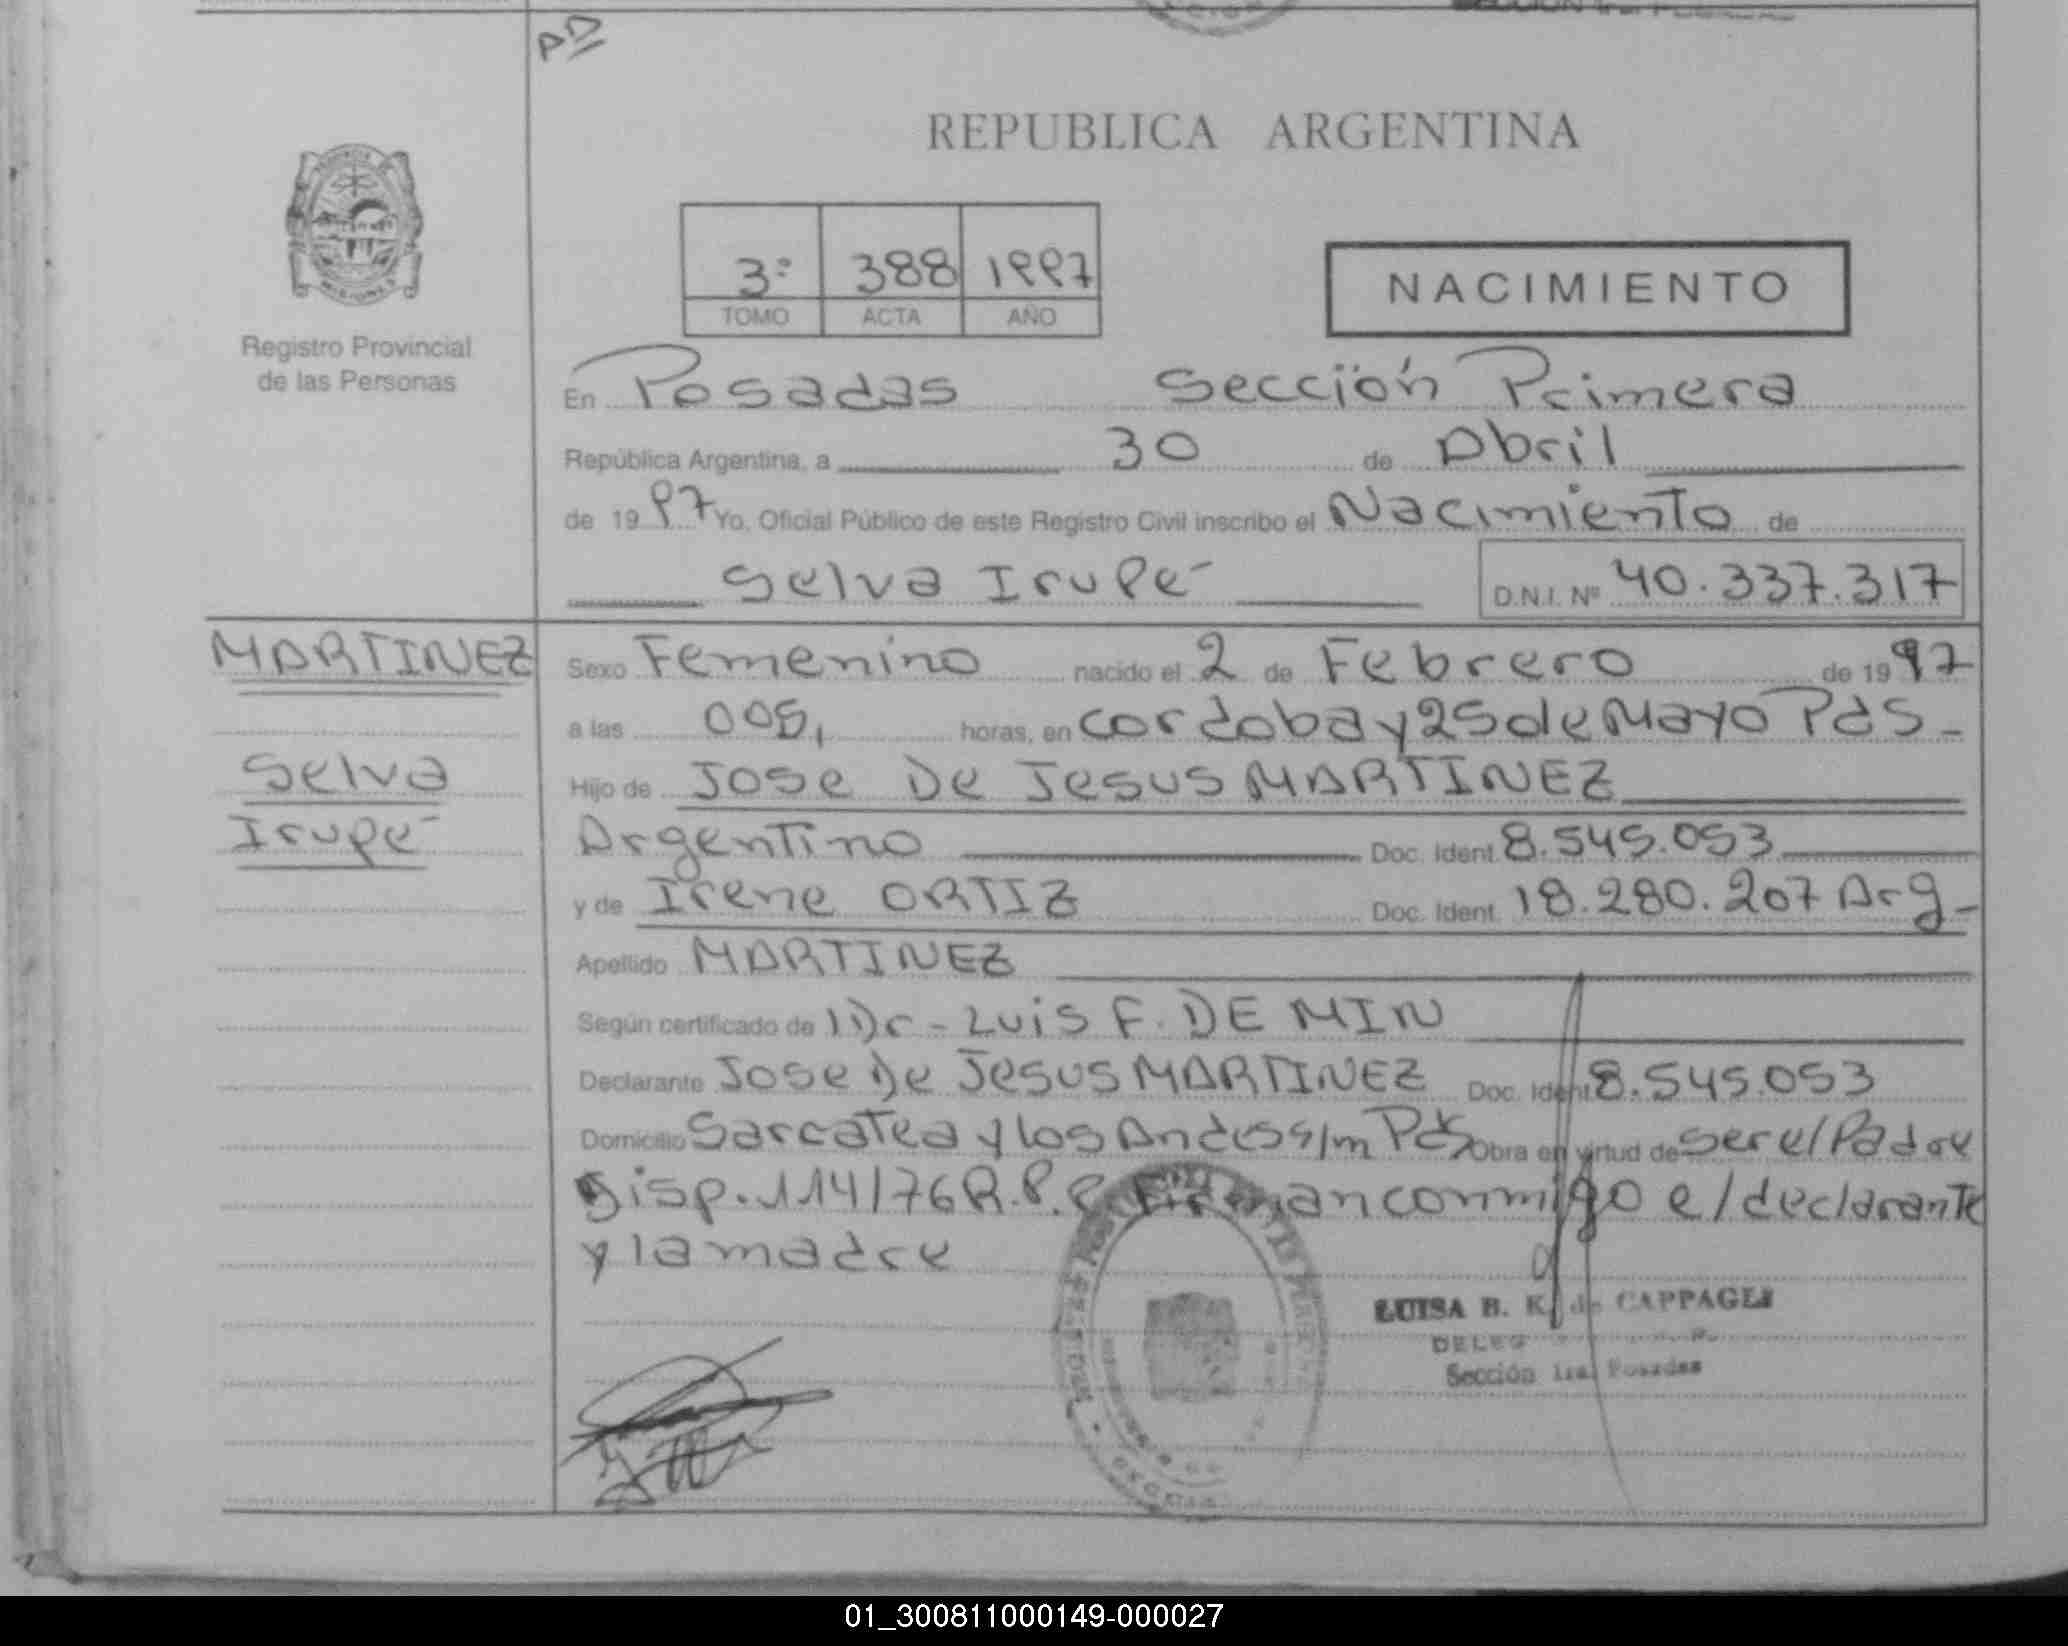 AD
REPUBLICA ARGENTINA
3º 388 1997
TOMO ACTA AÑO
NACIMIENTO
Registro Provincial
de las Personas
En Posadas Sección Primera
República Argentina, a 30 de Abril
de 1997 Yo, Oficial Público de este Registro Civil inscribo el Nacimiento de
Selva Irupé D.N.I. Nº 40.337.317
MARTINEZ
Selva
Irupé
Sexo Femenino nacido el 2 de Febrero de 1997
a las horas, en Cordoba y 25 de Mayo Pds -
Hijo de Jose De Jesus MARTINEZ
Argentino Doc. Ident. 8.545.053
y de Irene ORTIZ Doc. Ident. 18.280.207 Arg -
Apellido MARTINEZ
Según certificado de Dr - Luis F. DE MIN
Declarante Jose De Jesus MARTINEZ Doc. Ident. 8.545.053
Domicilio y los Andes s/m Pds Obra en virtud de ser el Padre
Disp. 114/76 R.P.P. Firman conmigo el declarante
y la madre
LUISA B. K. de CAPPAGLI
DELEG
Sección 1ra. Posadas
01_300811000149-000027